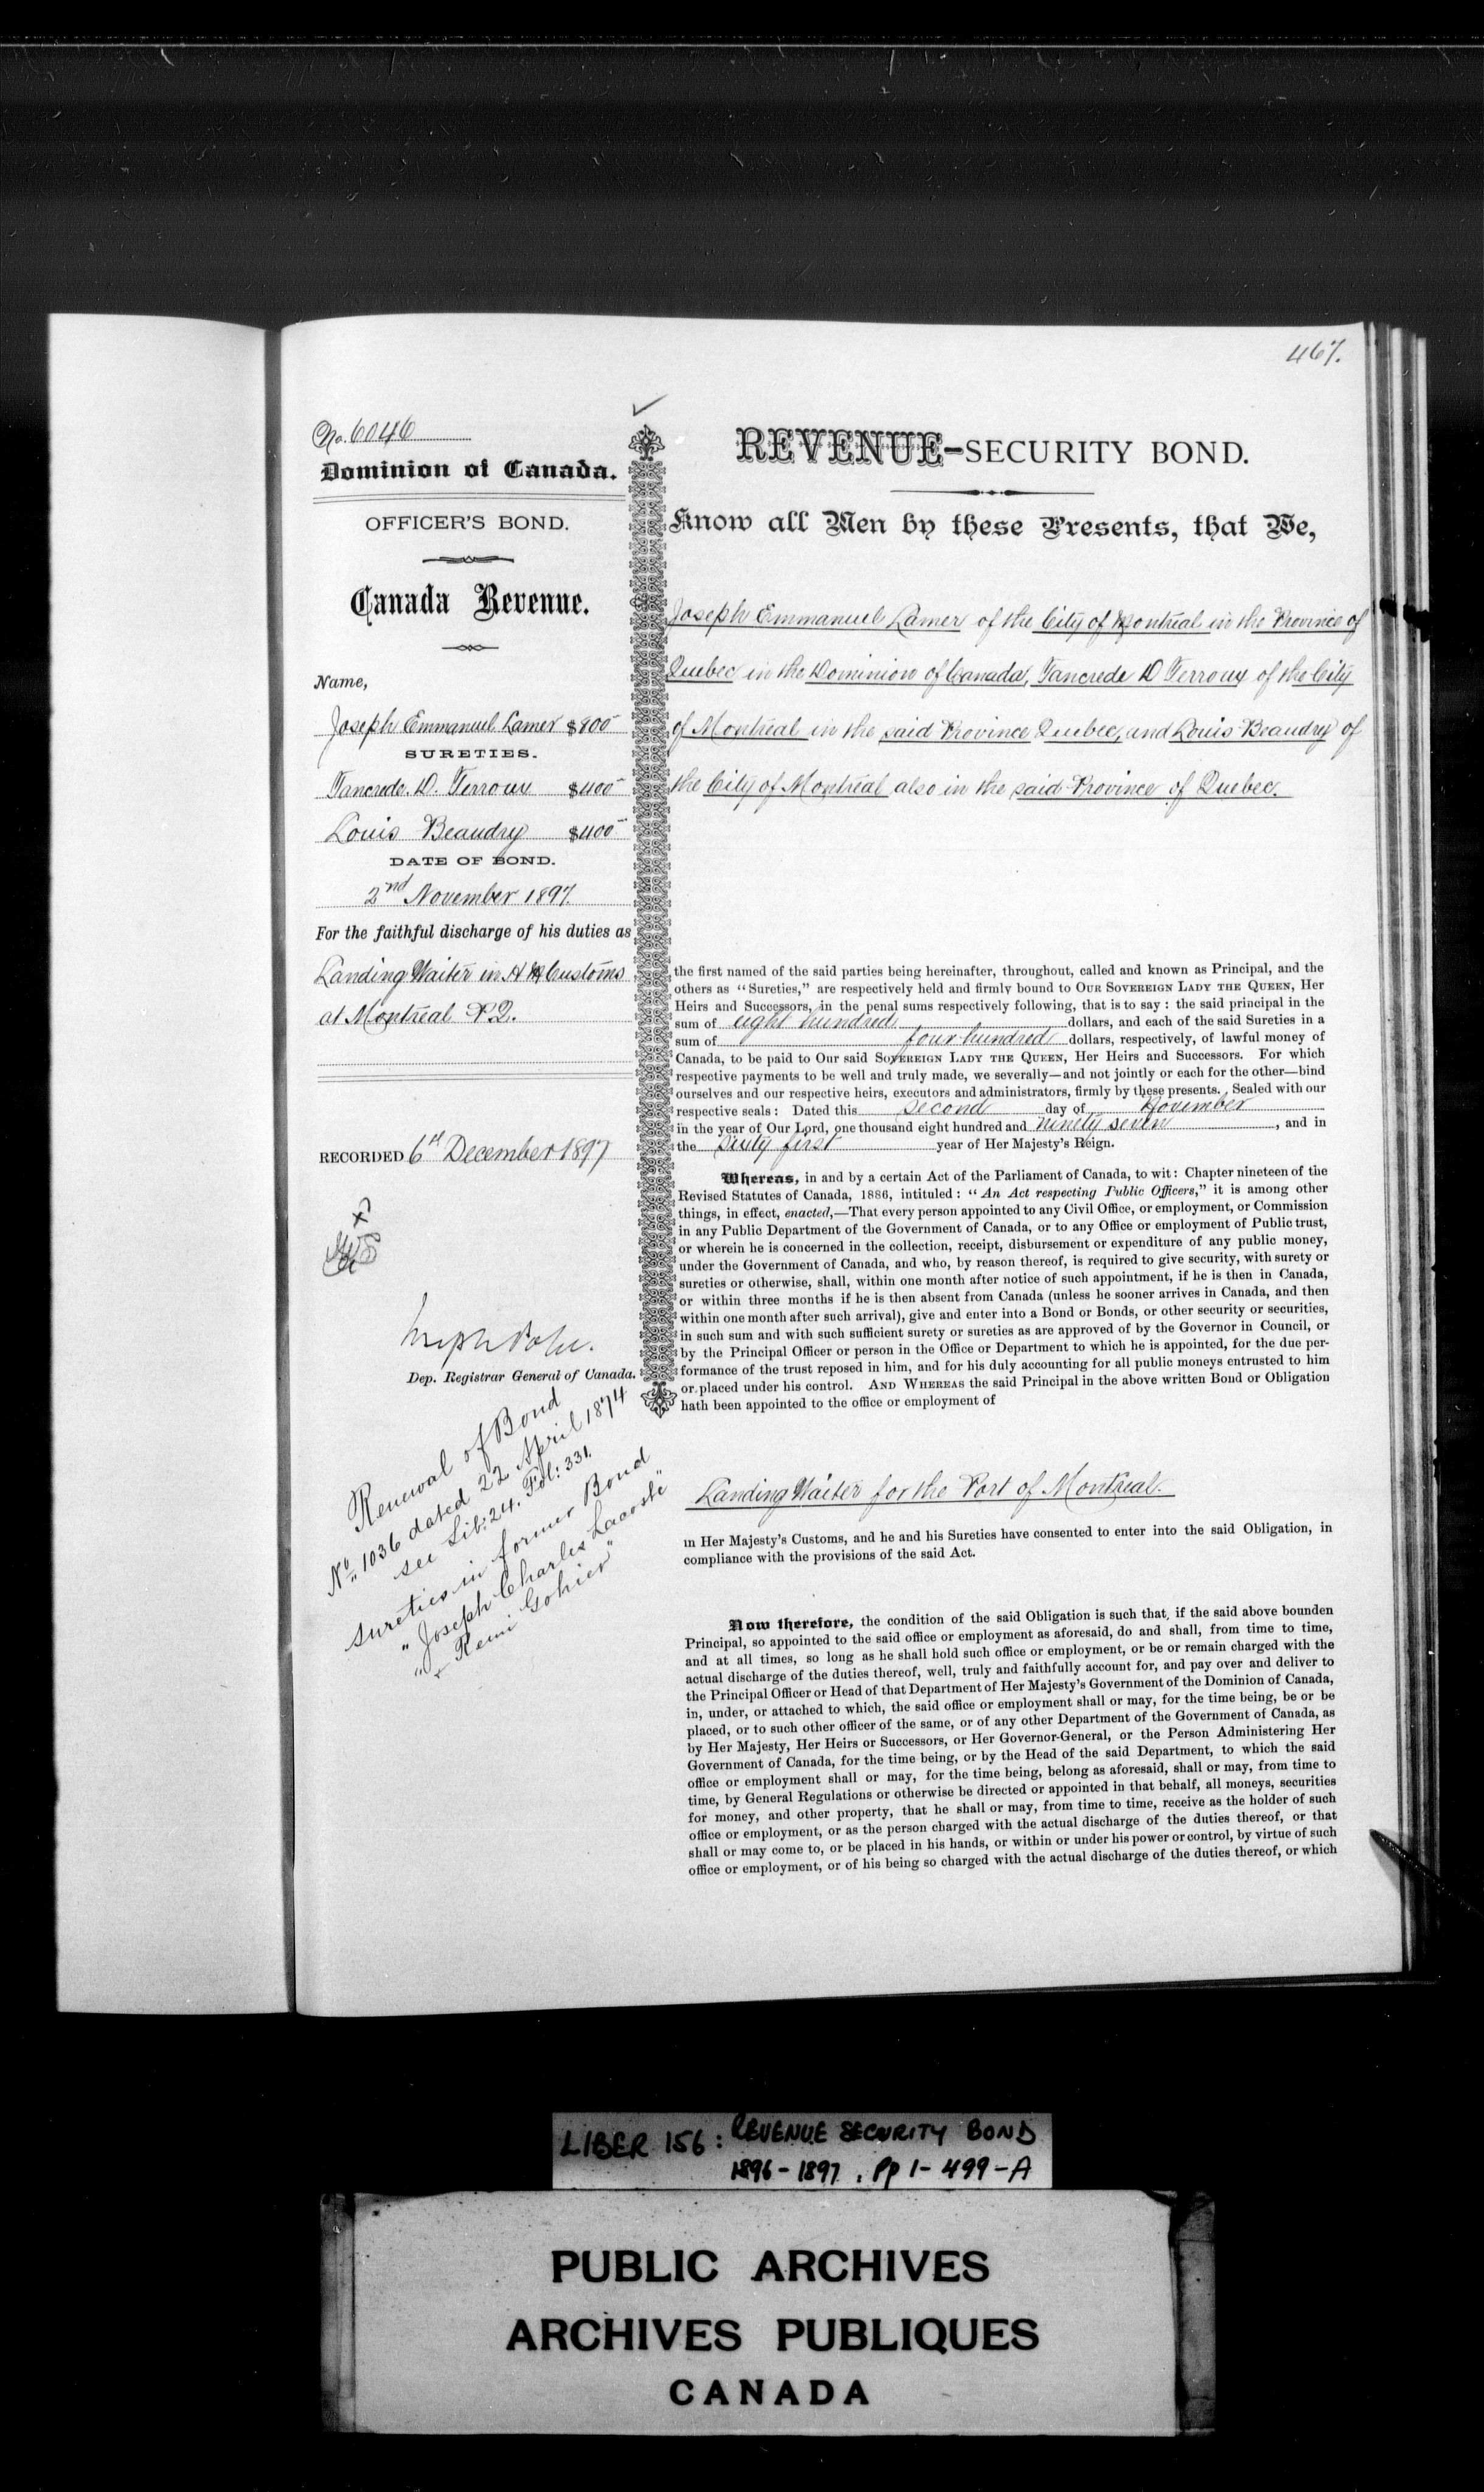 467.
No. 6046
Dominion of Canada.
OFFICER'S BOND.
Canada Revenue.
Name,
Joseph Emmanuel Lamer $800
SURETIES.
Tancrede. D. Terroux $400
Louis Beaudry $400
DATE OF BOND.
2nd November 1897.
For the faithful discharge of his duties as
Landing Waiter in H M Customs
at Montreal P.Q.
RECORDED 6th December 1897
Joseph Pope.
Dep. Registrar General of Canada.
Renewal of Bond
No. 1036 dated 22 April 1874
see Lib: 24. Fol: 331.
Sureties in former Bond
"Joseph Charles Lacoste"
" & Remi Gohier"
REVENUE-SECURITY BOND.
Know all Men by these Presents, that We,
Joseph Emmanuel Lamer of the City of Montreal in the Province of
Quebec in the Dominion of Canada, Tancrede D Terroux of the City
of Montreal in the said Province Quebec, and Louis Beaudry of
the City of Montreal also in the said Province of Quebec.
the first named of the said parties being hereinafter, throughout, called and known as Principal, and the
others as "Sureties," are respectively held and firmly bound to OUR SOVEREIGN LADY THE QUEEN, Her
Heirs and Successors, in the penal sums respectively following, that is to say : the said principal in the
sum of eight hundred dollars, and each of the said Sureties in a
sum of four hundred dollars, respectively, of lawful money of
Canada, to be paid to Our said SOVEREIGN LADY THE QUEEN, Her Heirs and Successors. For which
respective payments to be well and truly made, we severally—and not jointly or each for the other—bind
ourselves and our respective heirs, executors and administrators, firmly by these presents. Sealed with our
respective seals : Dated this second day of November
in the year of Our Lord, one thousand eight hundred and ninety seven, and in
the sixty first year of Her Majesty's Reign.
Whereas, in and by a certain Act of the Parliament of Canada, to wit : Chapter nineteen of the
Revised Statutes of Canada, 1886, intituled : "An Act respecting Public Officers," it is among other
things, in effect, enacted,—That every person appointed to any Civil Office, or employment, or Commission
in any Public Department of the Government of Canada, or to any Office or employment of Public trust,
or wherein he is concerned in the collection, receipt, disbursement or expenditure of any public money,
under the Government of Canada, and who, by reason thereof, is required to give security, with surety or
sureties or otherwise, shall, within one month after notice of such appointment, if he is then in Canada,
or within three months if he is then absent from Canada (unless he sooner arrives in Canada, and then
within one month after such arrival), give and enter into a Bond or Bonds, or other security or securities,
in such sum and with such sufficient surety or sureties as are approved of by the Governor in Council, or
by the Principal Officer or person in the Office or Department to which he is appointed, for the due per-
formance of the trust reposed in him, and for his duly accounting for all public moneys entrusted to him
or placed under his control. AND WHEREAS the said Principal in the above written Bond or Obligation
hath been appointed to the office or employment of
Landing Waiter for the Port of Montreal.
in Her Majesty's Customs, and he and his Sureties have consented to enter into the said Obligation, in
compliance with the provisions of the said Act.
Now therefore, the condition of the said Obligation is such that, if the said above bounden
Principal, so appointed to the said office or employment as aforesaid, do and shall, from time to time,
and at all times, so long as he shall hold such office or employment, or be or remain charged with the
actual discharge of the duties thereof, well, truly and faithfully account for, and pay over and deliver to
the Principal Officer or Head of that Department of Her Majesty's Government of the Dominion of Canada,
in, under, or attached to which, the said office or employment shall or may, for the time being, be or be
placed, or to such other officer of the same, or of any other Department of the Government of Canada, as
by Her Majesty, Her Heirs or Successors, or Her Governor-General, or the Person Administering Her
Government of Canada, for the time being, or by the Head of the said Department, to which the said
office or employment shall or may, for the time being, belong as aforesaid, shall or may, from time to
time, by General Regulations or otherwise be directed or appointed in that behalf, all moneys, securities
for money, and other property, that he shall or may, from time to time, receive as the holder of such
office or employment, or as the person charged with the actual discharge of the duties thereof, or that
shall or may come to, or be placed in his hands, or within or under his power or control, by virtue of such
office or employment, or of his being so charged with the actual discharge of the duties thereof, or which
LIBER 156 : REVENUE SECURITY BOND
1896-1897 . Pp 1-499-A
PUBLIC ARCHIVES
ARCHIVES PUBLIQUES
CANADA